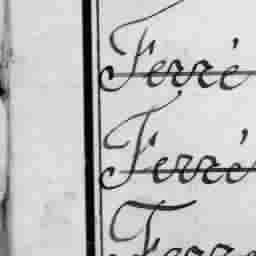 Ferré
Ferré
Ferre